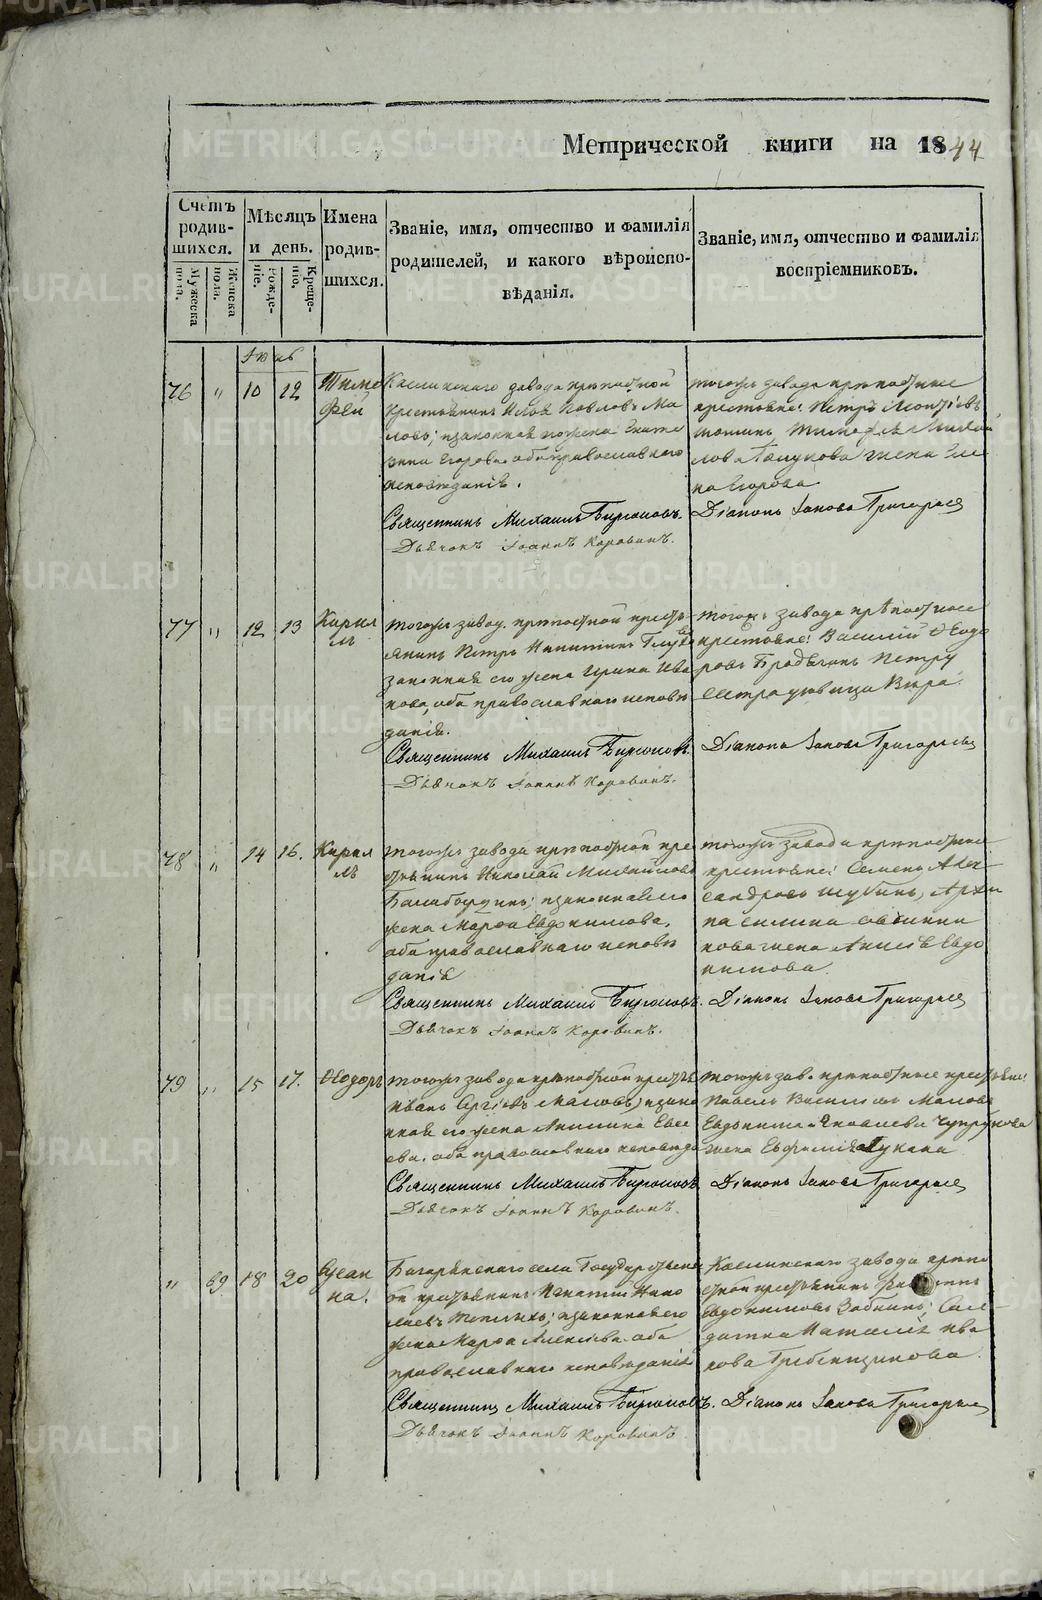 Метрической книги на 1844
Счетъ родив-шихся.
Мужеска пола.
Женска пола.
Мѣсяцъ и день.
Рожде-нiе.
Креще-нiе.
Имена родив-шихся.
Званiе, имя, отчество и фамилiя
родителей, и какого вѣроиспо-
вѣданiя.
Званiе, имя, отчество и фамилiя
воспрiемниковъ.
Iюнь
76 " 10 12
Тимо
фей
Каслинскаго завода крѣпостной
крестьянинъ Iяковъ Павловъ Ма
ловъ; и законная его жена Екате
рина Егорова оба православнаго
исповѣданiя.
Священникъ Михаилъ Бирюковъ.
Дьячокъ Iоаннъ Коровинъ.
тогожъ завода крѣпостные
крестьяне: Петръ Леонтiевъ
Тимофея Михай
лова жена Еле
на Егорова
Дiаконъ Iаковъ Григорьевъ
77 " 12 13
Кирил
лъ
тогожъ завод. крѣпостной кресть
янинъ Петръ Никитинъ
законная его жена Ирина Ива
нова, оба православнаго исповѣ
данiя.
Священникъ Михаилъ Бирюковъ.
Дьячокъ Iоаннъ Коровинъ.
тогожъ завода крѣпостные
крестьяне: Василiй Ѳеодо
ровъ Петру
сестра дѣвица Вѣра.
Дiаконъ Iаковъ Григорьевъ
78 " 14 16.
Кирил
лъ
тогожъ завода крѣпостной кре
стьянинъ Николай Михайловъ
и законная его
жена Марѳа Евдокимова,
оба православнаго исповѣ
данiя
Священникъ Михаилъ Бирюковъ.
Дьячокъ Iоаннъ Коровинъ.
тогожъ завода крѣпостные
крестьяне: Семенъ Алек
сандровъ Шубинъ, Архи
па Силина Овчинни
кова жена Анисiя Евдо
кимова.
Дiаконъ Iаковъ Григорьевъ
79 " 15 17.
Ѳеодоръ
тогожъ завода крѣпостной крестья
Иванъ Сергiевъ Маловъ; и зако
нная его жена Акилина Евсе
ева. оба православнаго исповѣда
Священникъ Михаилъ Бирюковъ
Дьячокъ Iоаннъ Коровинъ.
тогожъ зав. крѣпостные крестьяне:
Павелъ Васильевъ Маловъ
Евдокима Яковлева Чупрунова
жена Евфимiя
Дiаконъ Iаковъ Григорьевъ
" 69 18 20
Сусан
на.
Багарякскаго села Государствен
ой крестьянинъ Игнатiй Нико
лаевъ и законная его
жена Марѳа Алексѣева оба
православнаго исповѣданiя
Священникъ Михаилъ Бирюковъ.
Дьячокъ Iоаннъ Коровинъ
Каслинскаго завода крѣпо
стной крестьянинъ
Евдокимовъ Сол
датка Наталiя Ива
нова Гребенщикова.
Дiаконъ Iаковъ Григорьевъ
METRIKI.GASO-URAL.RU